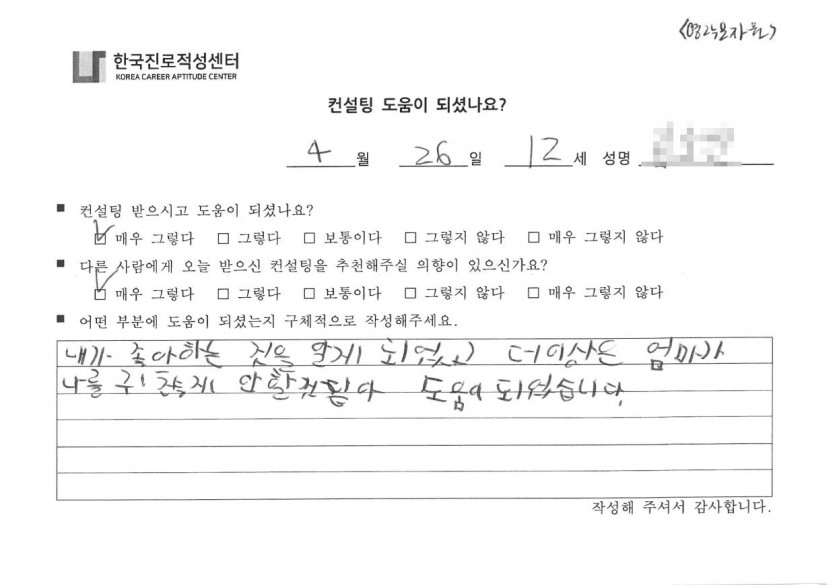 한국진로적성센터
KOREA CAREER APTITUDE CENTER
컨설팅 도움이 되셨나요?
4 월 26 일 12 세 성명
■ 컨설팅 받으시고 도움이 되셨나요?
☑ 매우 그렇다 □ 그렇다 □ 보통이다 □ 그렇지 않다 □ 매우 그렇지 않다
■ 다른 사람에게 오늘 받으신 컨설팅을 추천해주실 의향이 있으신가요?
☑ 매우 그렇다 □ 그렇다 □ 보통이다 □ 그렇지 않다 □ 매우 그렇지 않다
■ 어떤 부분에 도움이 되셨는지 구체적으로 작성해주세요.
내가 좋아하는 것을 알게 되었고 더이상은 엄마가
나를 귀찮게 안할것같아 도움이 되었습니다.
작성해 주셔서 감사합니다.